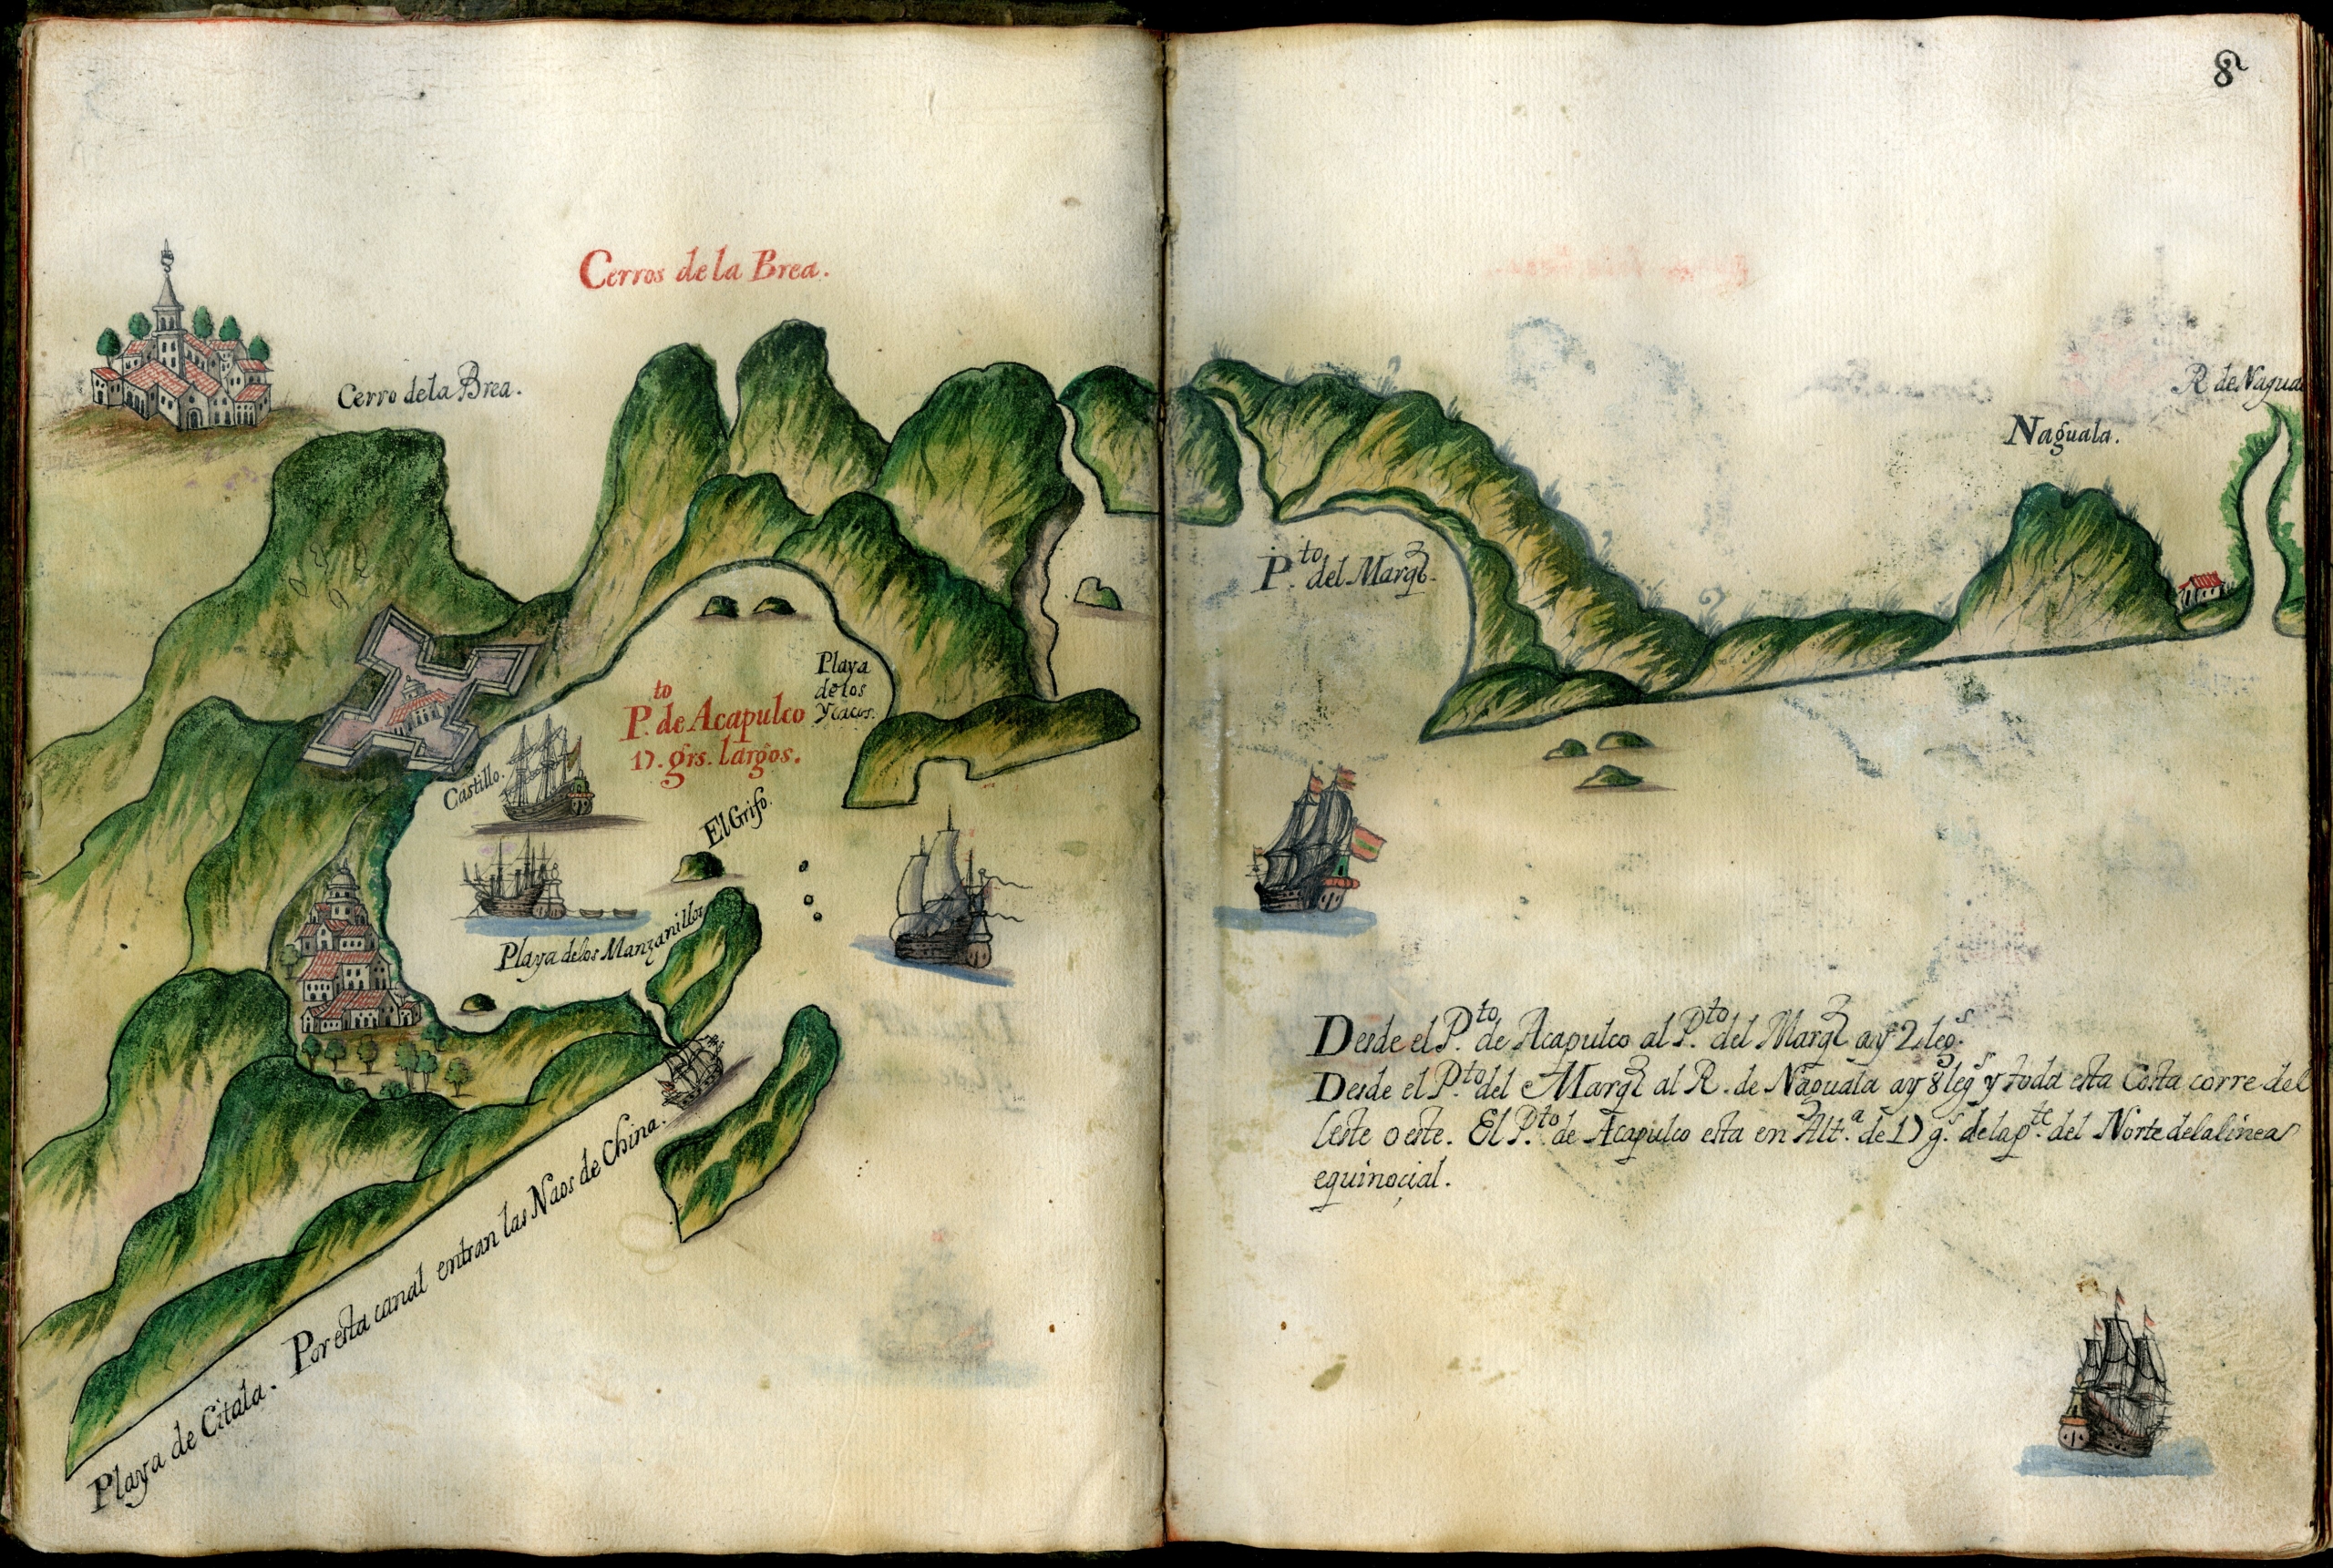 8
Cerros de la Brea.
Cerro de la Brea.
R de Nagua
Naguala.
P.to del Marqz.
Playa
de los
Ycacos.
P.to de Acapulco
17. grs. largos.
Castillo.
El Grifo.
Playa de los Manzanillos
Playa de Citala. Por esta canal entran las Naos de China.
Desde el P.to de Acapulco al P.to del Marqz ay 2 legs.
Desde el P.to del Marqz al R. de Naguala ay 8 legs y toda esta Costa corre del
leste oeste. El P.to de Acapulco esta en Alt.a de 17 g.s de la p.te del Norte de la linea
equinoçial.